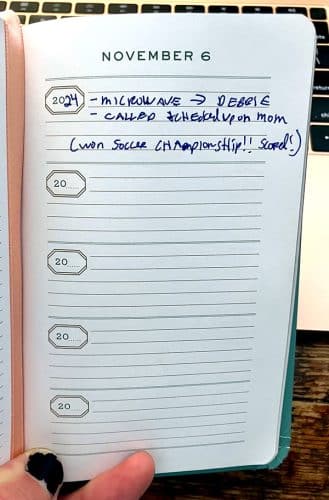 NOVEMBER 6
2024 - MICROWAVE → DEBBIE
- CALLED + CHECKED UPON MOM
(WON SOCCER CHAMPIONSHIP!! SCORED!)
20
20
20
20